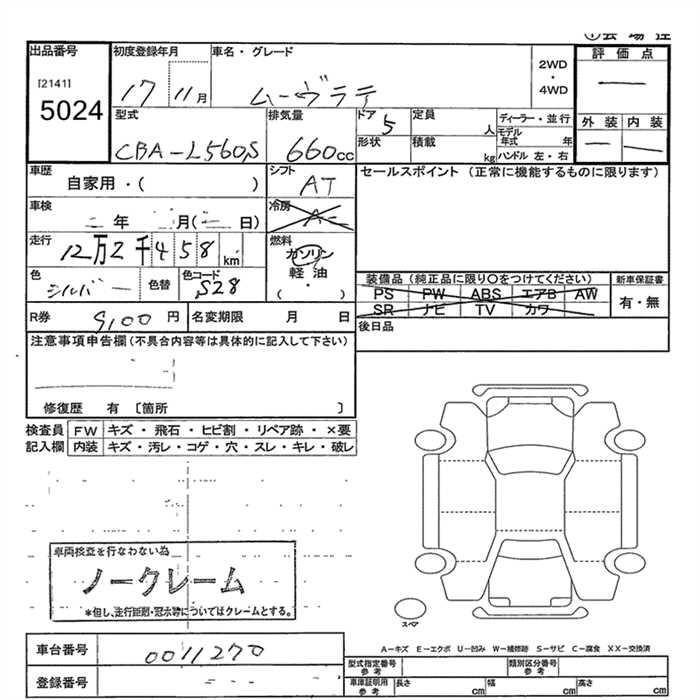 出品番号
[2141]
5024
初度登録年月
17 11月
車名・グレード
ムーヴラテ
2WD
・
4WD
評価点
外装 内装
型式
CBA-L560S
排気量
660cc
ドア 5
形状
定員 人
積載 kg
ディーラー・並行
モデル年式 年
ハンドル 左・右
車歴
自家用・( )
シフト
AT
車検
年 月( 日)
冷房
A
走行
12万2千458km
燃料
ガソリン
軽油
・
( )
色
シルバー
色替
色コード
S28
R券 9,100円
名変期限 月 日
セールスポイント(正常に機能するものに限ります)
装備品(純正品に限り○をつけてください)
PS PW ABS エアB AW
SR ナビ TV カワ
新車保証書
有・無
後日品
注意事項申告欄(不具合内容等は具体的に記入して下さい)
修復歴 有 〔箇所 〕
検査員記入欄
FW キズ・飛石・ヒビ割・リペア跡・×要
内装 キズ・汚レ・コゲ・穴・スレ・キレ・破レ
車両検査を行なわない為
ノークレーム
*但し、走行距離・冠水等についてはクレームとする。
スペア
A-キズ E-エクボ U-凹み W-補修跡 S-サビ C-腐食 XX-交換済
車台番号
0011270
登録番号
型式指定番号参考
類別区分番号参考
車庫証明用参考
長さ cm 幅 cm 高さ cm